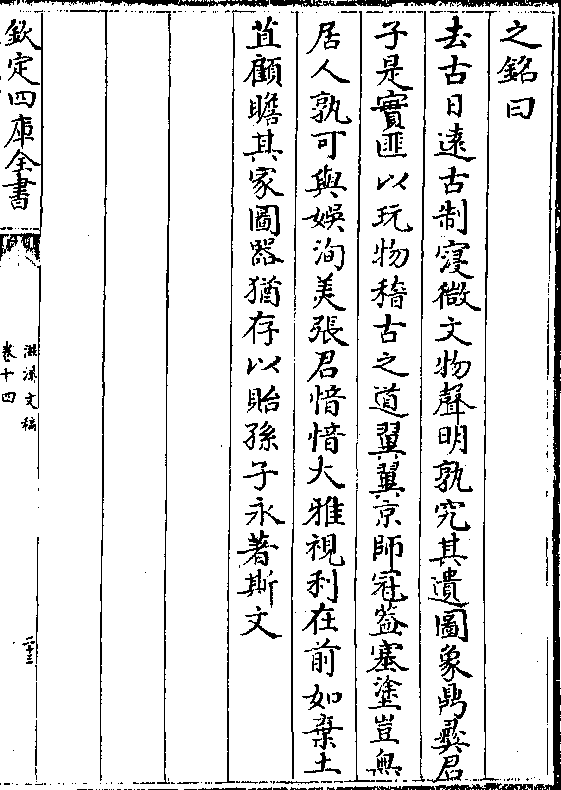 之銘曰
去古日遠古制寖微文物聲明孰究其遺圖象鼎彛君
子是寶匪以玩物稽古之道翼翼京師冠葢塞塗豈無
居人孰可與娯洵美張君愔愔大雅視利在前如棄土
苴顧瞻其家圖器猶存以貽孫子永著斯文
欽定四庫全書
滋溪文稿
卷十四
二十三